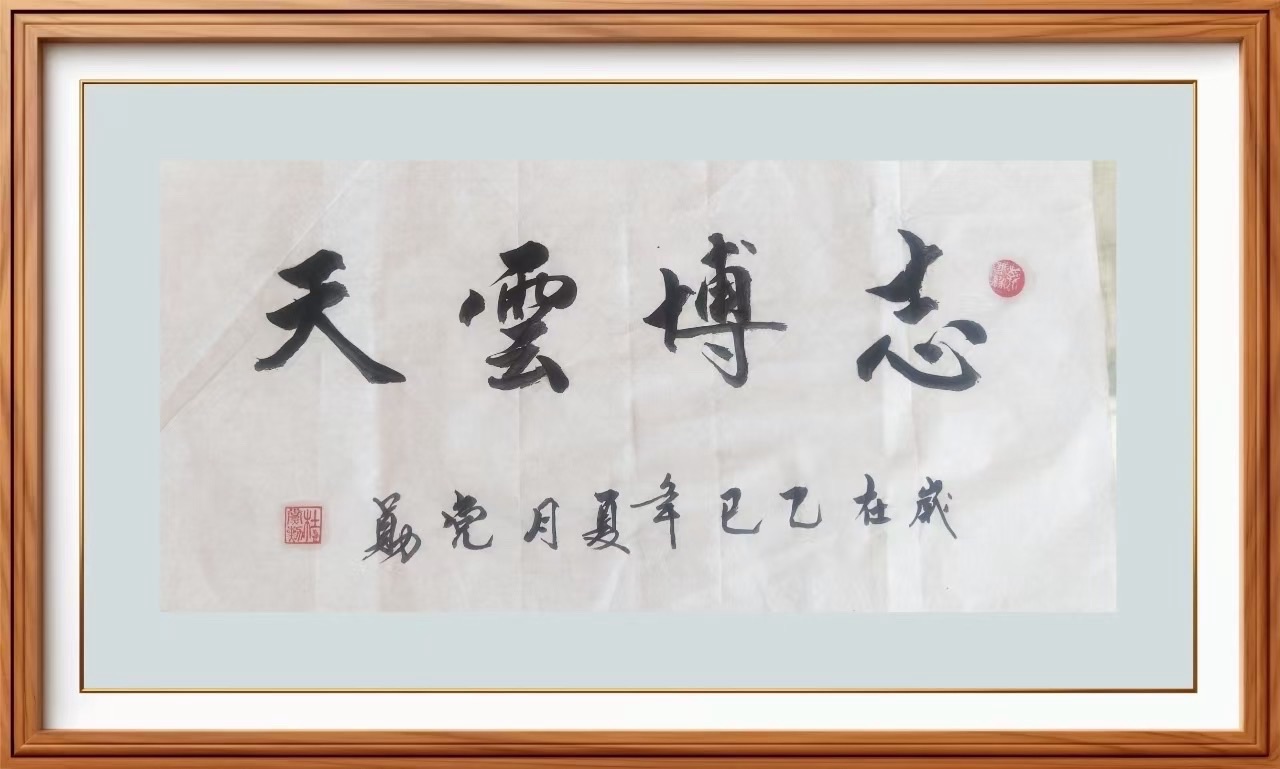 志博雲天
歲在乙巳年夏月党勤